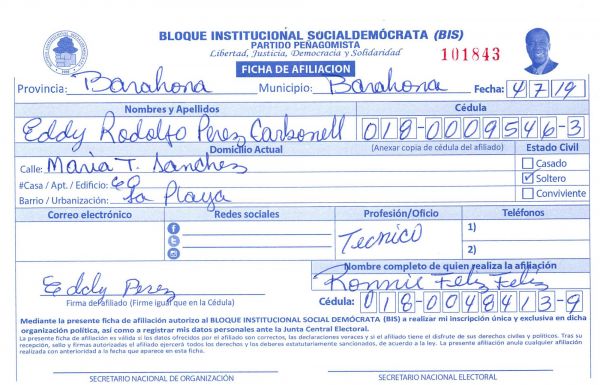 BLOQUE INSTITUCIONAL SOCIALDEMÓCRATA (BIS)
PARTIDO PEÑAGOMISTA
Libertad, Justicia, Democracia y Solidaridad
101843
FICHA DE AFILIACION
Provincia: Barahona Municipio: Barahona Fecha: 4/7/19
Nombres y Apellidos Cédula
Eddy Rodolfo Perez Carbonell 018-0009546-3
Domicilio Actual (Anexar copia de cédula del afiliado) Estado Civil
Calle: Maria T. Sanchez Casado
#Casa / Apt. / Edificio: Soltero
Barrio / Urbanización: La Playa Conviviente
Correo electrónico Redes sociales Profesión/Oficio Teléfonos
Tecnico 1)
2)
Nombre completo de quien realiza la afiliación
Eddy Perez Ronnie Feliz Feliz
Firma del afiliado (Firme igual que en la Cédula) Cédula: 018-0048413-9
Mediante la presente ficha de afiliación autorizo al BLOQUE INSTITUCIONAL SOCIAL DEMÓCRATA (BIS) a realizar mi inscripción única y exclusiva en dicha
organización política, así como a registrar mis datos personales ante la Junta Central Electoral.
La presente ficha de afiliación es válida si los datos ofrecidos por el afiliado son correctos, las declaraciones veraces y si el afiliado tiene el disfrute de sus derechos civiles y políticos. Tras su
recepción, sello y firmas autorizadas el afiliado ejercerá todos los derechos y los deberes estatutariamente sancionados, de acuerdo a la ley. La presente afiliación anula cualquier afiliación
realizada con anterioridad a la fecha que aparece en esta ficha.
SECRETARIO NACIONAL DE ORGANIZACIÓN SECRETARIO NACIONAL ELECTORAL